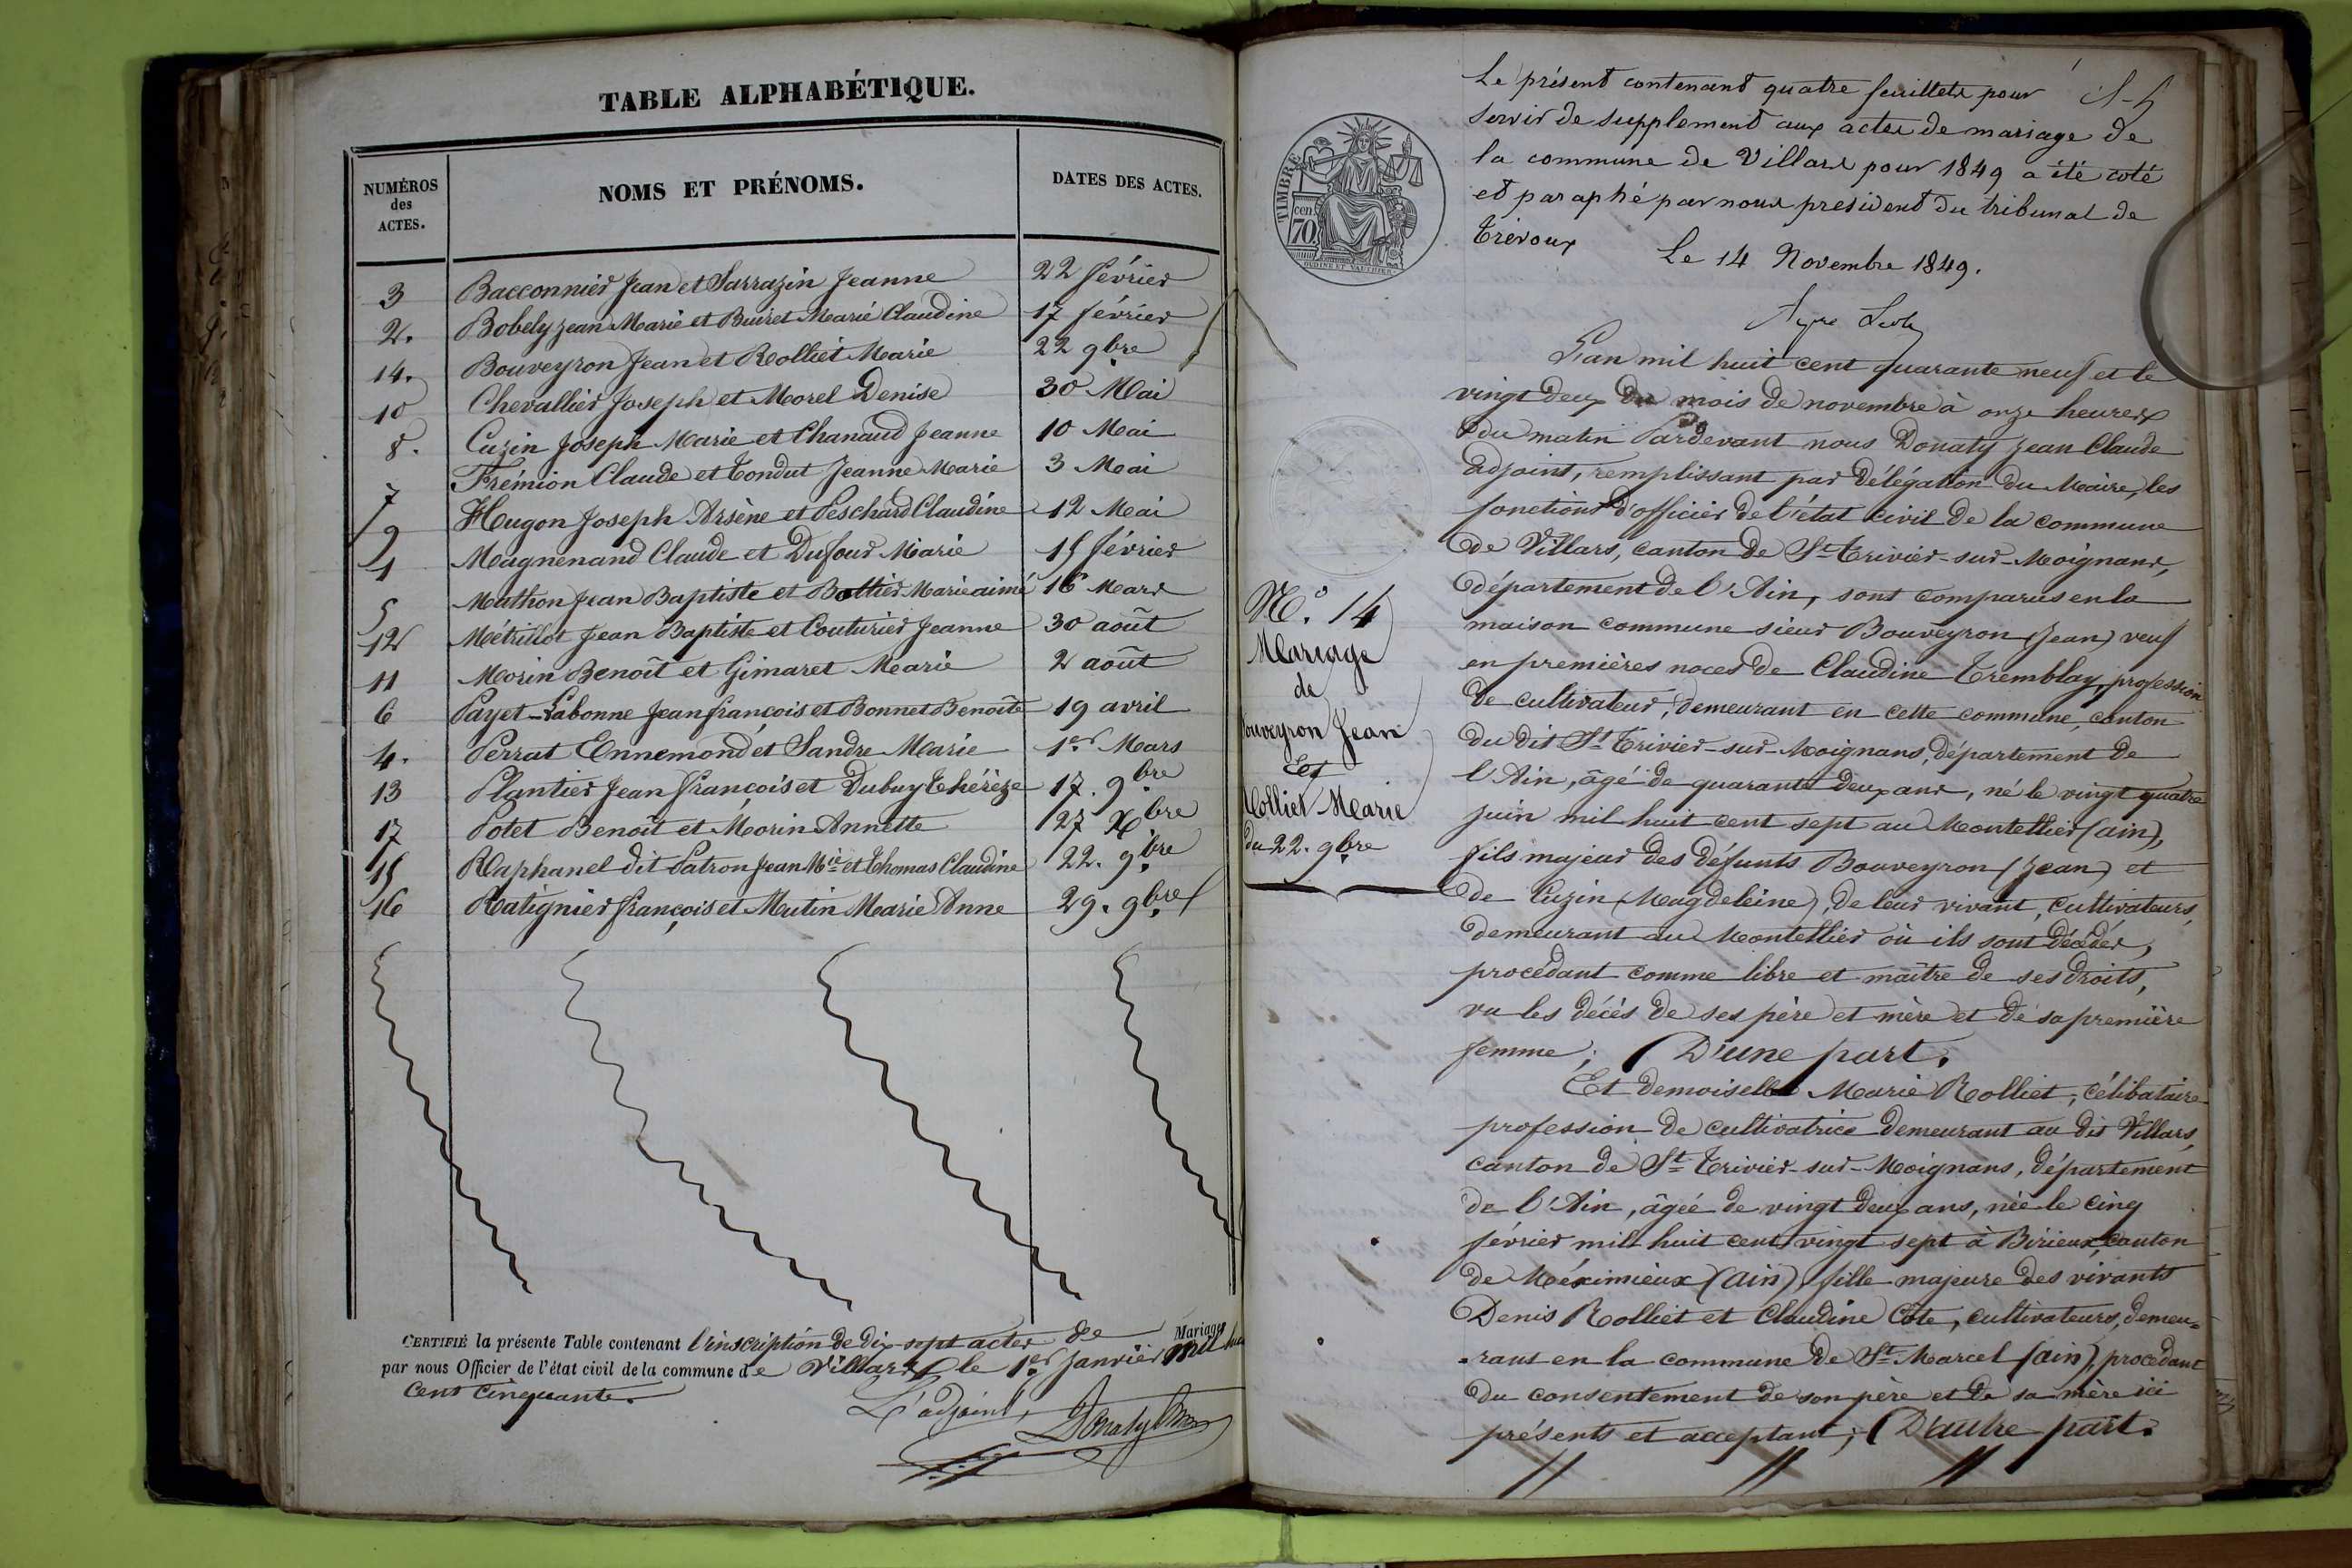 TABLE ALPHABÉTIQUE.
NUMÉROS des ACTES. NOMS ET PRÉNOMS. DATES DES ACTES.
3 Bacconnier Jean et Sarrazin Jeanne 22 février
2. Bobely jean Marie et Buiret Marie Claudine 17 février
14. Bouveyron Jean et Rolliet Marie 22 9bre
10 Chevallier Joseph et Morel Denise 30 Mai
8. Cuzin Joseph Marie et Chanaud Jeanne 10 Mai
7 Frémion Claude et Tondut Jeanne Marie 3 Mai
9 Hugon Joseph Arsène et Peschard Claudine 12 Mai
1 Magnenand Claude et Dufour Marie 15 février
5 Mathon Jean Baptiste et Bottier Marie aimé 16 Mars
12 Métrillot Jean Baptiste et Couturier Jeanne 30 août
11 Morin Benoît et Gimaret Marie 2 août
6 Payet-Labonne Jean françois et Bonnet Benoîte 19 avril
4. Perrat Ennemond et Sandre Marie 1er Mars
13 Plantier Jean françois et Dubuy Thérèze 17. 9bre
17 Potet Benoît et Morin Annette 27 Xbre
15 Raphanel dit Patron Jean Mie et Thomas Claudine 22. 9bre
16 Ratignier françois et Mutin Marie Anne 29. 9bre
CERTIFIÉ la présente Table contenant l'inscription de dix-sept actes de Mariages
par nous Officier de l'état civil de la commune de Villars le 1er Janvier mil huit
cent cinquante.
L'adjoint, Donaty
Le présent contenant quatre feuillets pour
servir de supplement aux actes de mariage de
la commune de Villars pour 1849 a été coté
et paraphé par nous president du tribunal de
Trévoux Le 14 Novembre 1849.
TIMBRE
cen. 70
L'an mil huit cent quarante neuf et le
vingt deux du mois de novembre à onze heures
du matin Pardevant nous Donaty jean Claude
adjoint, remplissant par délégation du Maire, les
fonctions d'officier de l'état civil de la commune
de Villars, canton de St Trivier-sur-Moignans,
département de l'Ain, sont comparus en la
maison commune sieur Bouveyron (Jean) veuf
en premières noces de Claudine Tremblay, profession
de cultivateur, demeurant en cette commune, canton
du dit St Trivier-sur-Moignans, département de
l'Ain, âgé de quarante deux ans, né le vingt quatre
juin mil huit cent sept au Montellier (ain),
fils majeur des défunts Bouveyron (Jean) et
de Cuzin (Magdeleine), de leur vivant, cultivateurs,
demeurant au Montellier où ils sont décédés,
procédant comme libre et maître de ses droits,
vu les décès de ses père et mère et de sa première
femme; D'une part.
Et demoiselle Marie Rolliet, célibataire
profession de cultivatrice demeurant au dit Villars,
canton de St Trivier-sur-Moignans, département
de l'Ain, âgée de vingt deux ans, née le cinq
février mil huit cent vingt sept à Birieux, canton
de Méximieux (ain), fille majeure des vivants
Denis Rolliet et Claudine Côte, cultivateurs, demeu-
-rant en la commune de St Marcel (ain), procédant
du consentement de son père et de sa mère ici
présents et acceptant; D'autre part.
N.o 14
Mariage
de
Bouveyron Jean
Et
Rolliet Marie
du 22. 9bre